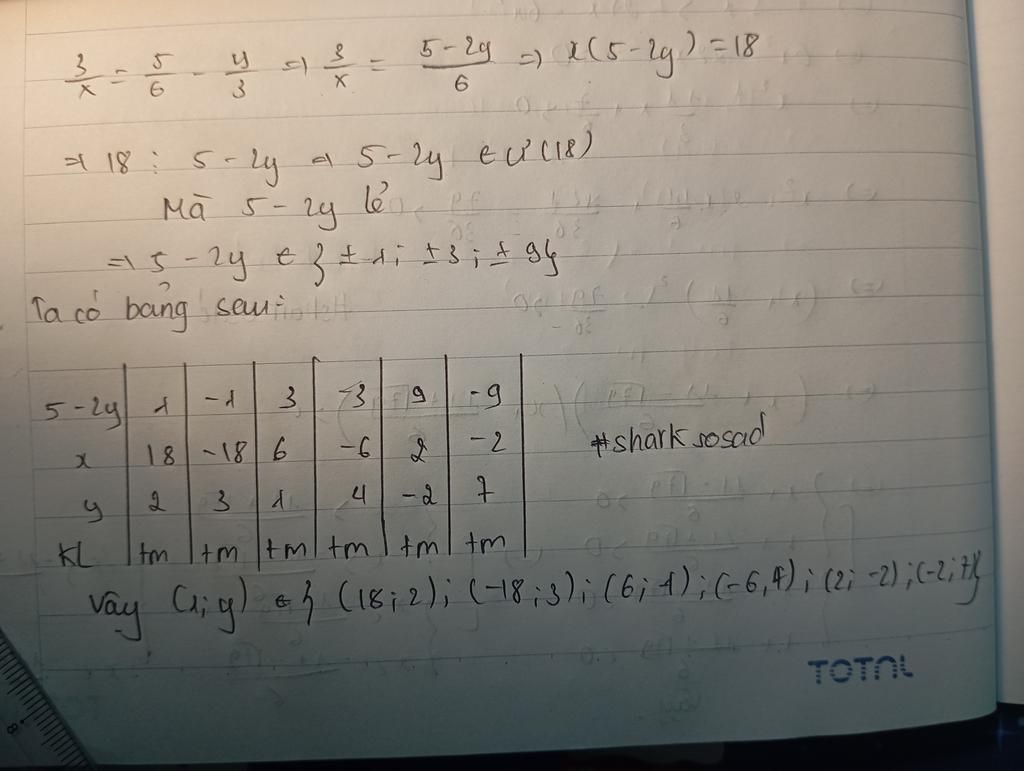 3/x = 5/6 - y/3 => 3/x = (5-2y)/6 => x(5-2y) = 18
=> 18 ⋮ 5-2y => 5-2y ∈ Ư(18)
Mà 5-2y lẻ
=> 5-2y ∈ {±1; ±3; ±9}
Ta có bảng sau:
5-2y | 1 | -1 | 3 | -3 | 9 | -9
x | 18 | -18 | 6 | -6 | 2 | -2
#sharksosad
y | 2 | 3 | 1 | 4 | -2 | 7
KL | tm | tm | tm | tm | tm | tm
Vậy (x;y) ∈ { (18;2); (-18;3); (6;1); (-6,4); (2;-2); (-2;7)}
TOTAL